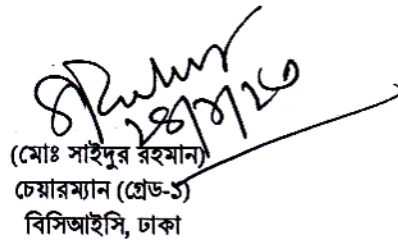 (মোঃ সাইদুর রহমান)
চেয়ারম্যান (গ্রেড-১)
বিসিআইসি, ঢাকা